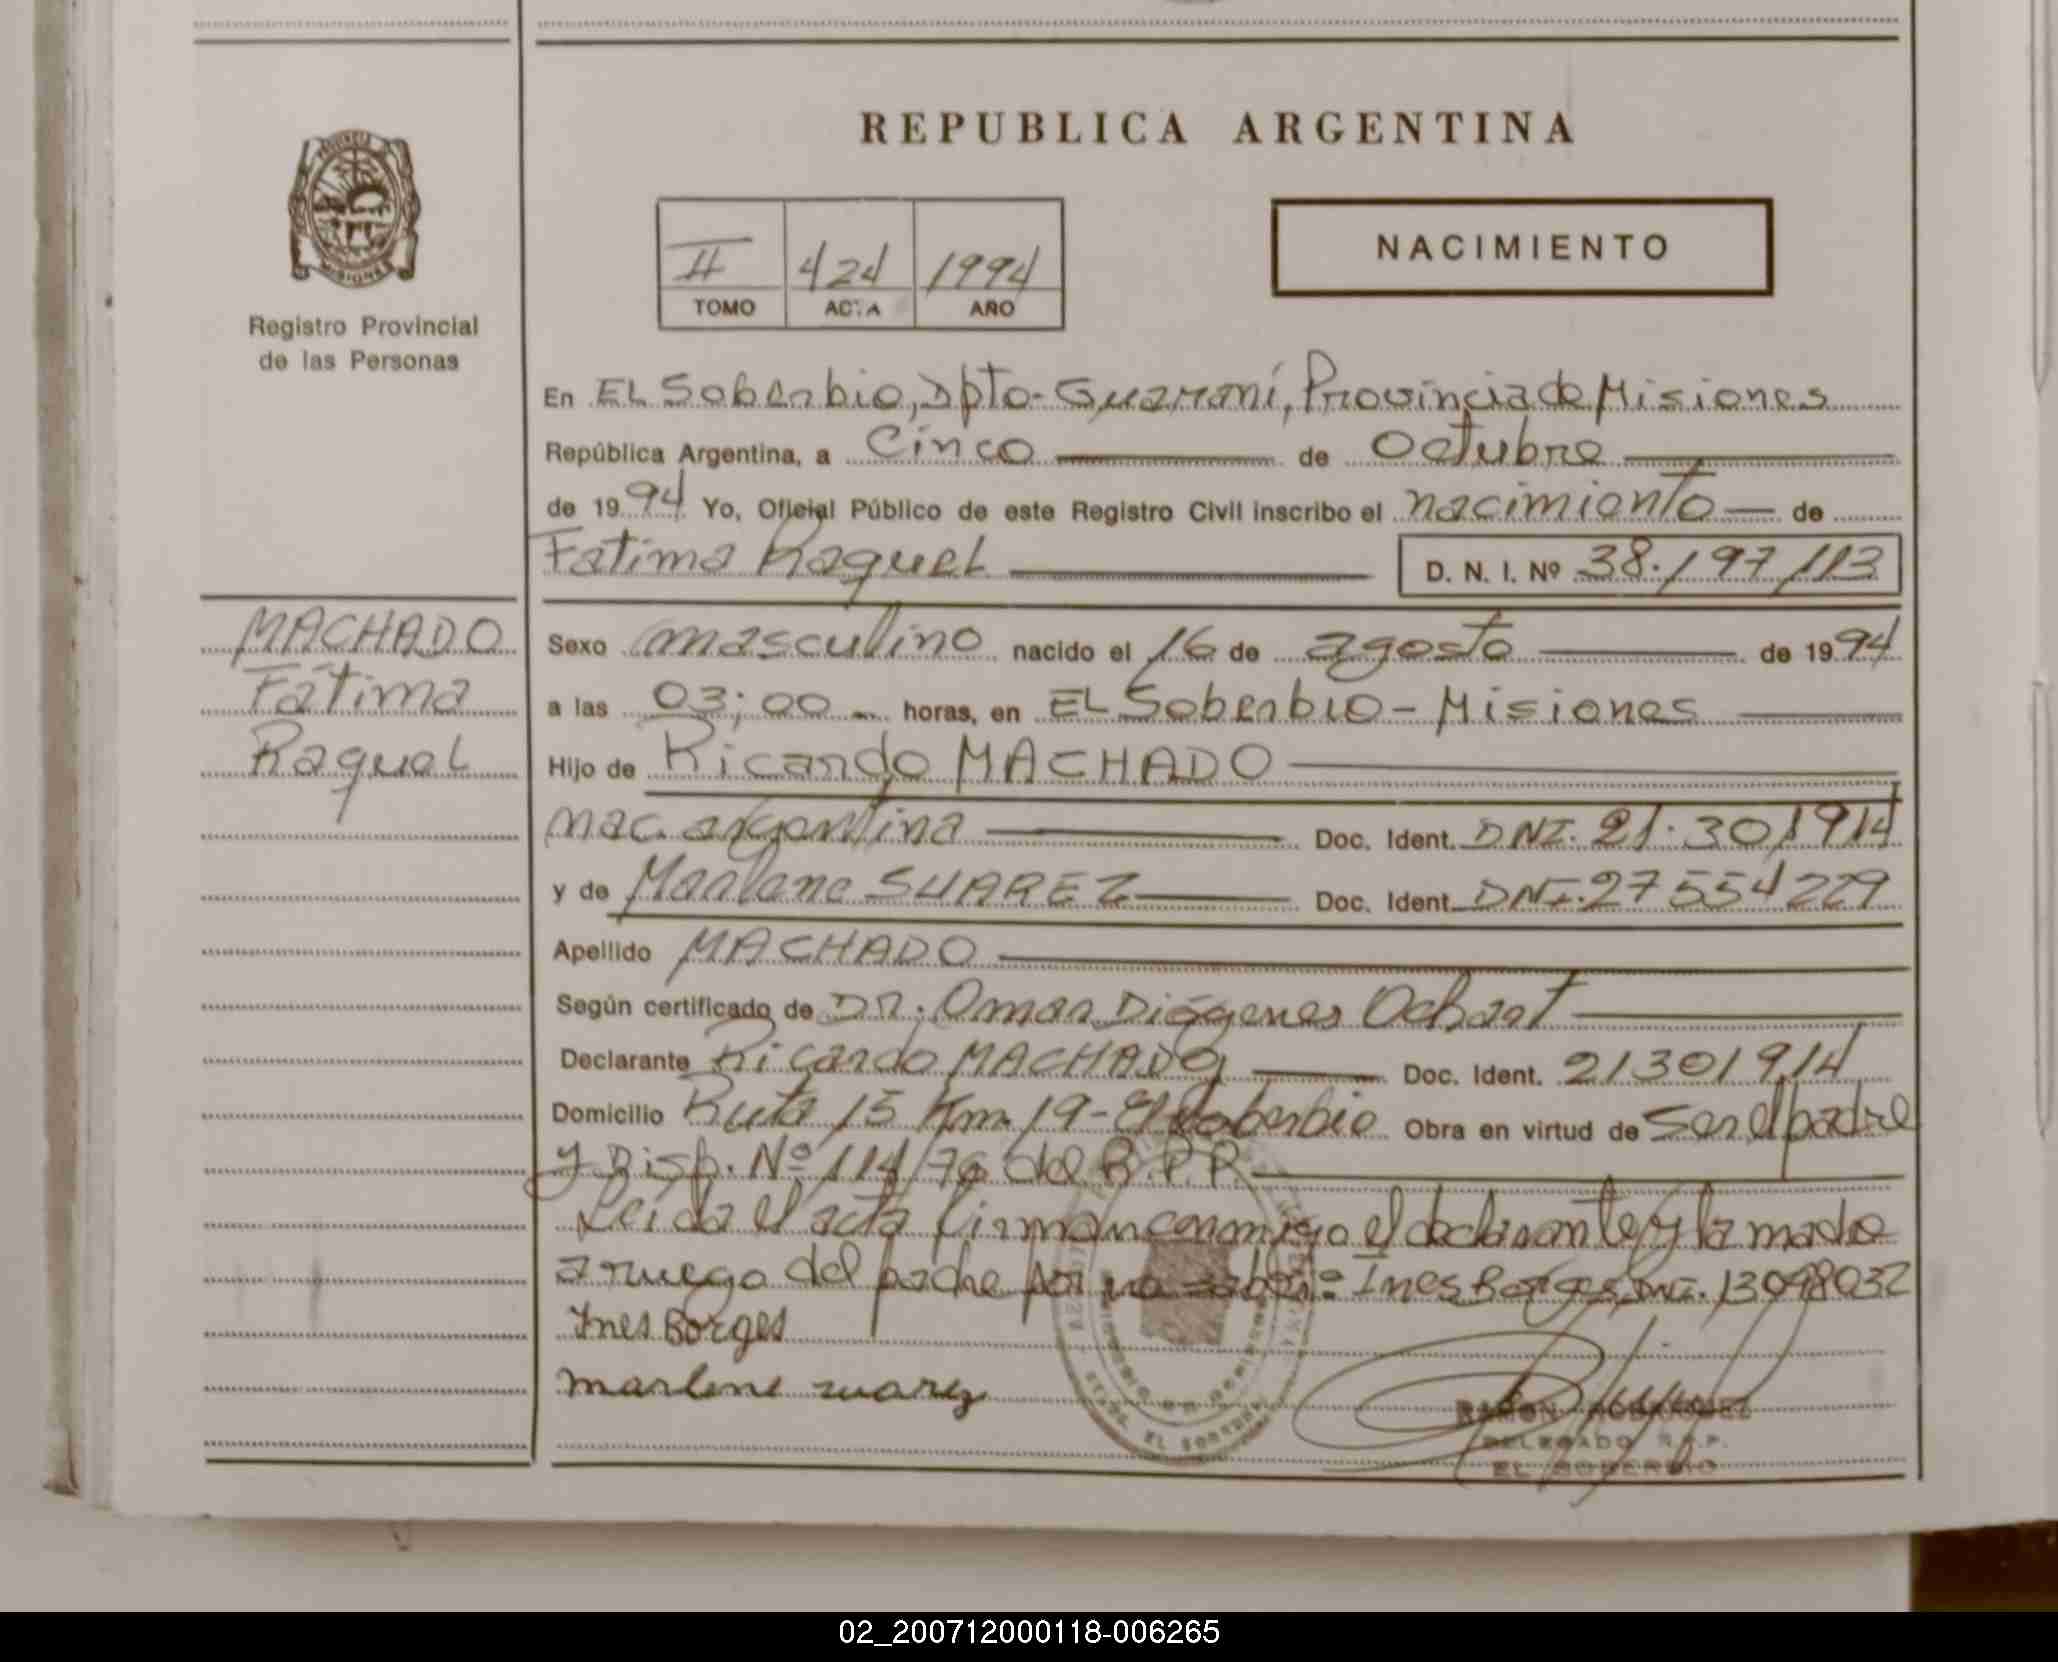 REPUBLICA ARGENTINA
PROVINCIA
MISIONES
Registro Provincial
de las Personas
II 424 1994
TOMO ACTA AÑO
NACIMIENTO
En EL Soberbio, Dpto-Guaraní, Provincia de Misiones
República Argentina, a Cinco de Octubre
de 1994 Yo, Oficial Público de este Registro Civil inscribo el nacimiento de
Fatima Raquel D. N. I. Nº 38.197.113
MACHADO
Fátima
Raquel
Sexo masculino nacido el 16 de agosto de 1994
a las 03:00 horas, en EL Soberbio - Misiones
Hijo de Ricardo MACHADO
nac. argentina Doc. Ident. DNI. 21.301914
y de Marlene SUAREZ Doc. Ident. DNI. 27554229
Apellido MACHADO
Según certificado de Dr. Omar Diógenes Ochart
Declarante Ricardo MACHADO Doc. Ident. 21301914
Domicilio Ruta 15 Km. 19 - El Soberbio Obra en virtud de Ser el padre
y Disp. Nº 114/76 del R.P.P.
Leida el acta firman conmigo el declarante y la madre
a ruego del padre por no saber: Ines Borges DNI. 13098032
Ines Borges
marlene suarez
RAMON RODRIGUEZ
DELEGADO R.P.P.
EL SOBERBIO
02_200712000118-006265